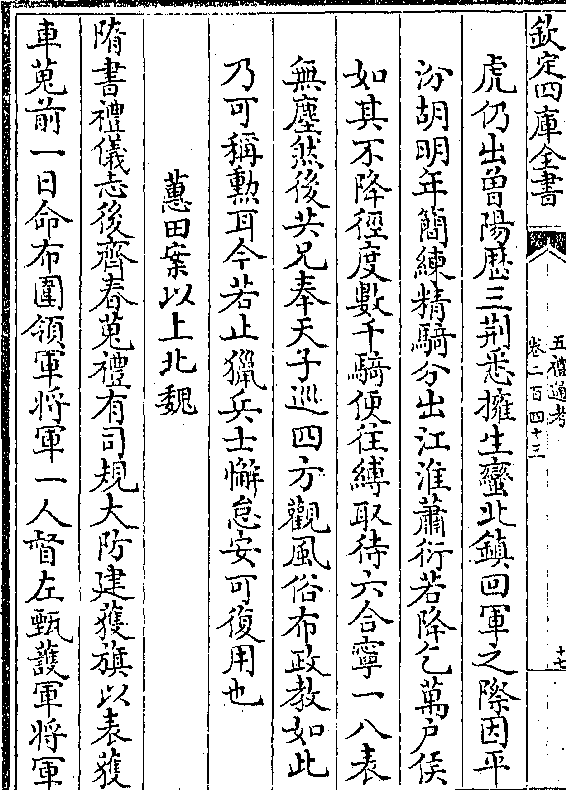 欽定四庫全書
五禮通考
卷二百四十三
十七
虎仍出魯陽歷三荆悉擁生蠻北鎮回軍之際因平
汾胡明年簡練精騎分出江淮蕭衍若降乞萬户侯
如其不降徑度數千騎便往縛取待六合寧一八表
無塵然後共兄奉天子巡四方觀風俗布政教如此
乃可稱勲耳今若止獵兵士懈怠安可復用也
蕙田案以上北魏
隋書禮儀志後齊春蒐禮有司規大防建獲旗以表獲
車蒐前一日命布圍領軍將軍一人督左甄護軍將軍